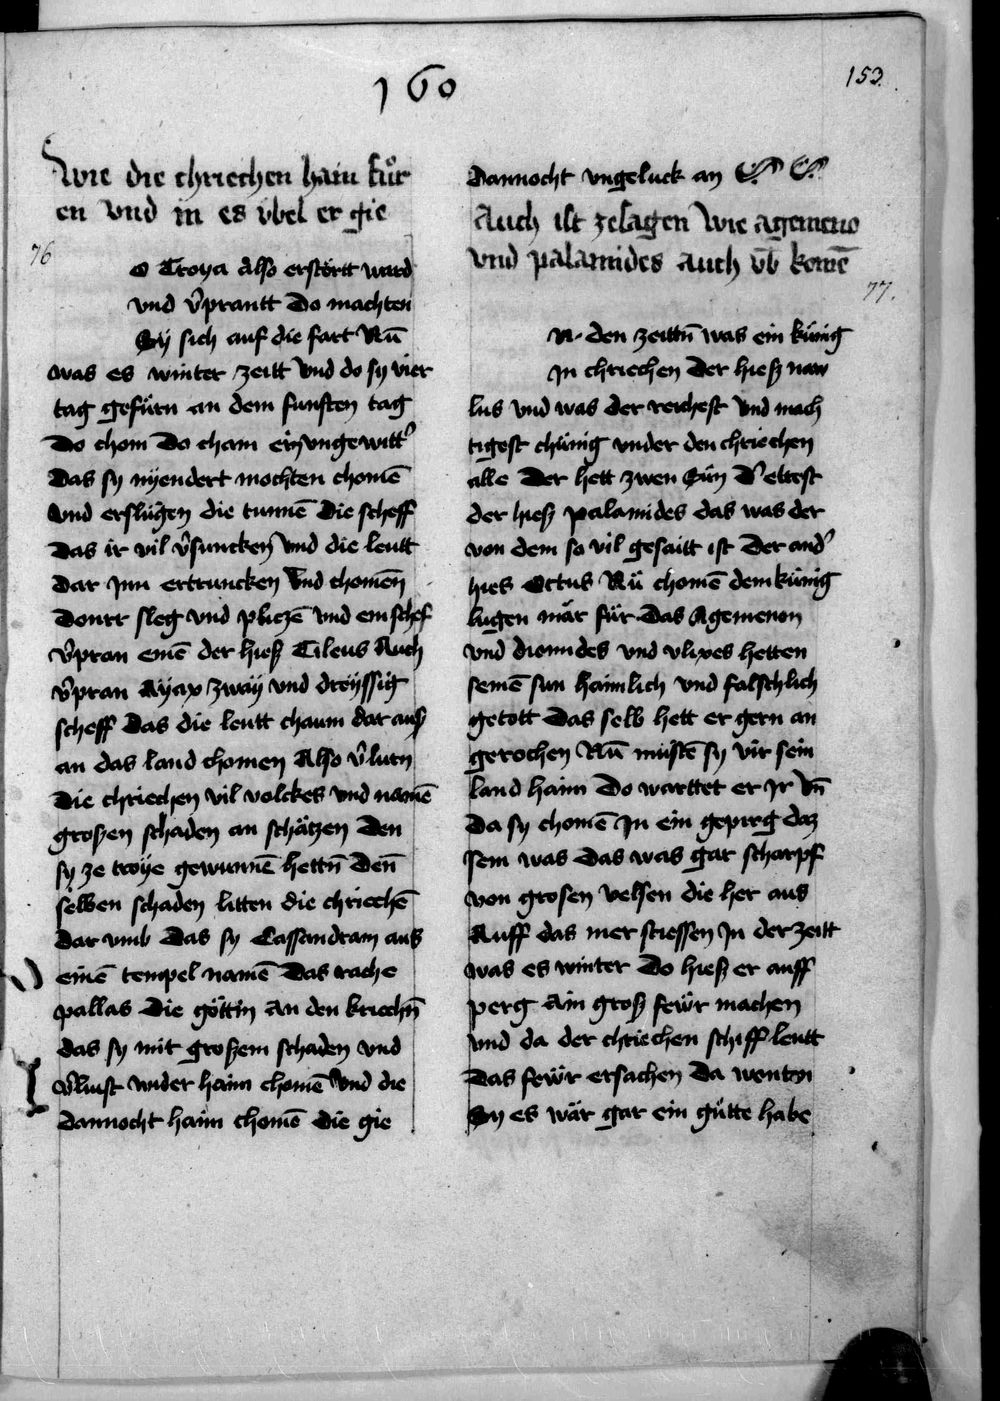 160
153
Wie die chriechen haim fuͦr
en vnd in es vbel er gie
76
O Troya Also erstörtt ward
vnd v̉prantt Do machten
Sÿ sich auf die fart Nū
was es winter zeitt vnd do sy vier
tag gefürn an dem funften tag
Do chom Do cham ein vngewitt̉
Das sy nyendert mochten chomē
vnd erslügen die tunnē Die scheff
Das ir vil v̉suncken vnd die leutt
Dar Inn ertruncken vnd chomen̄
Donrr sleg vnd pliczē vnd ein schef
v̉pran einē der hieß Tileus Auch
v̉pran Ayax zwaÿ vnd dreÿssig
scheff Das die leutt chaum dar auß
an das land chomen Also v̉lurn
die chriechen vil volckes vnd namē
großen schaden an schätzen Den
sy ze troye gewunnē hettn̄ Den̄
selben schaden litten die chriechē
Dar vmb Das sy Cassandram aus
einē tempel namē Das rache
pallas die göttin an den kriechn̄
das sy mit großem schaden vnd
v̉lust wider haim chomē vnd die
dannocht haim chomē die gie
Dannocht vngeluck an
Auch ist zesagen Wie agemeno
vnd palamides auch vb̄ komē
77.
N den zeittn̄ was ein künig
In chriechen Der hieß naw
lus vnd was der reichest vnd mach
tigest chünig vnder den chriechen
alle Der hett zwen Sün D̉ eltest
der hieß palamides das was der
von dem so vil gesaitt ist Der and̉
hies Octus Nū chomē dem künig
lugen mär für Das Agemenon
vnd diomides vnd vlixes hetten
seinē sun haimlich vnd falschlich
getott Das selb hett er gern an
gerochen Nū müstē sy vir sein
land haim Do warttet er Jr vn̄
Da sy chomē In ein gepirg daz
sein was das was gar scharpf
von grosen velsen die her aus
Auff das mer stiessen In der zeitt
was es winter Do hieß er auff
perg Ain groß fewr machen
vnd da der chriechen schiff leutt
Das fewr ersachen Da wentn
Sy es wär gar ein gütte habe